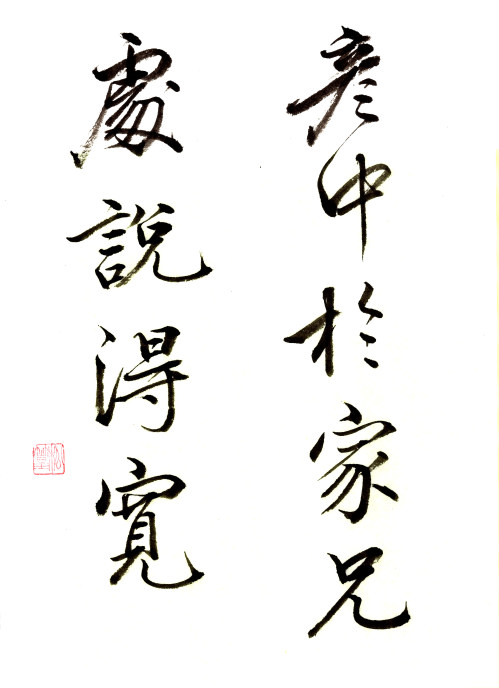 彦中於家兄
處說得寬